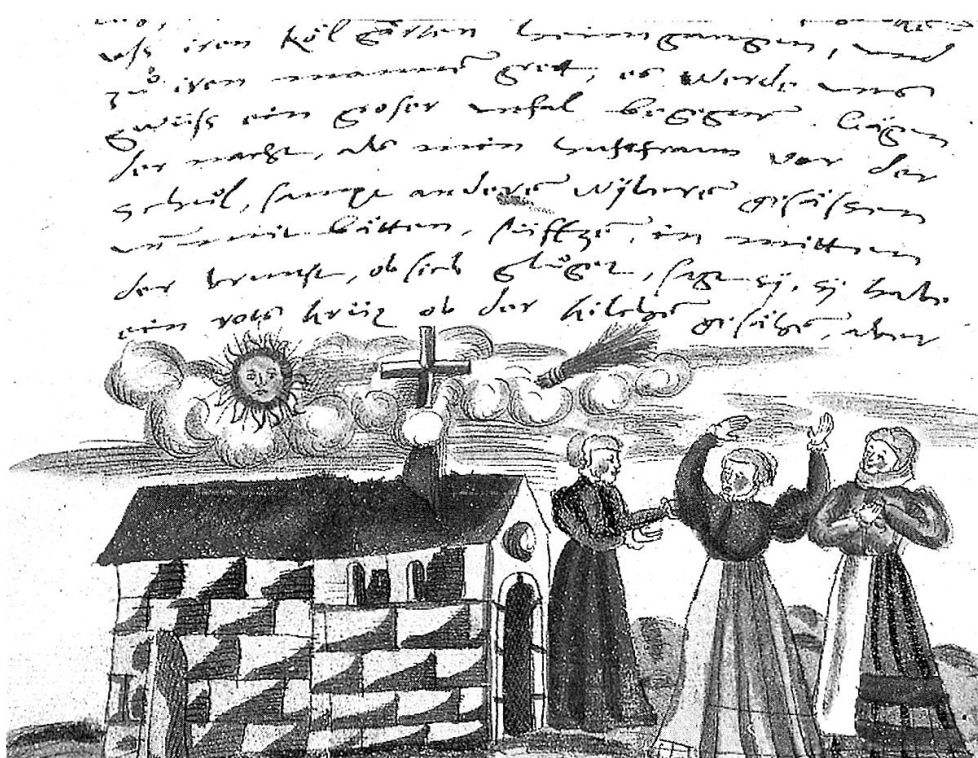 uſs iren Kölgärten heimgangen, und
zuͦ iren mannēn gret, es werde uns
gwüſs ein groſer unfal begegnē. Gägen
der nacht, als min husfrauw vor der
schuͦl, ſampt anderē Wyberē geſäſsen
und mit bätten, ſüffzē, in mitten
der brunſt, ob ſich gluͦget, ſagt sÿ, sÿ habe
ein rots krüz ob der kilchē geſähē, aber